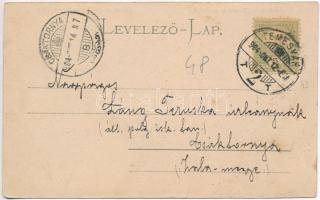 LEVELEZŐ-LAP.
CSÁKTORNYA
TEMESVÁR
48
Nagyságos
Lang Teruska urleánynak
(áll. polg. isk. tan.)
Csáktornya
(Zala-megye.)